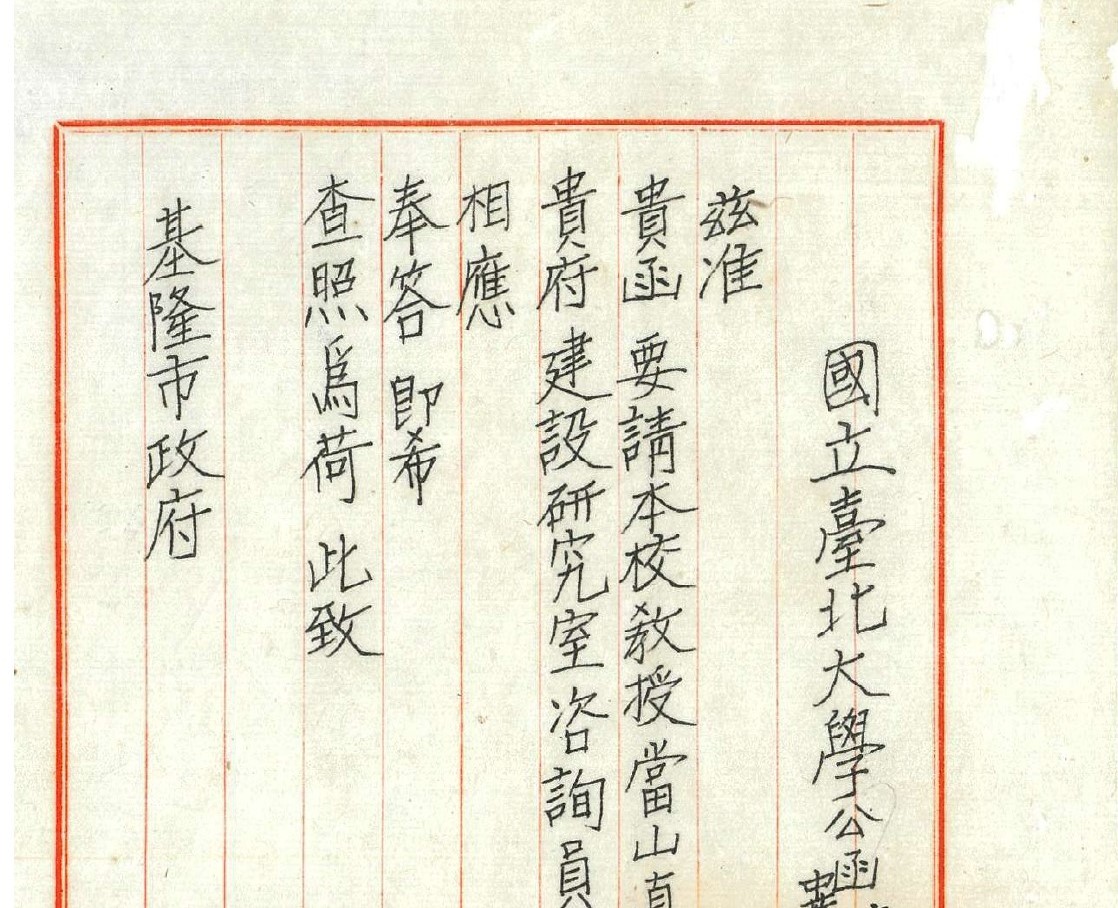 國立臺北大學公函
茲准
貴函 要請本校教授當山
貴府 建設研究室咨詢員
相應
奉答 即希
查照爲荷 此致
基隆市政府